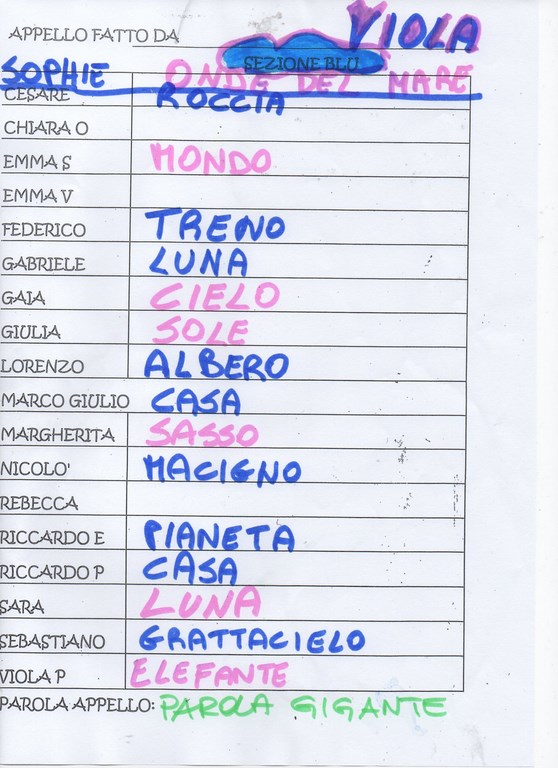 APPELLO FATTO DA VIOLA
SEZIONE BLU
SOPHIE ONDE DEL MARE
CESARE ROCCIA
CHIARA O
EMMA S MONDO
EMMA V
FEDERICO TRENO
GABRIELE LUNA
GAIA CIELO
GIULIA SOLE
LORENZO ALBERO
MARCO GIULIO CASA
MARGHERITA SASSO
NICOLO' MACIGNO
REBECCA
RICCARDO E PIANETA
RICCARDO P CASA
SARA LUNA
SEBASTIANO GRATTACIELO
VIOLA P ELEFANTE
PAROLA APPELLO: PAROLA GIGANTE